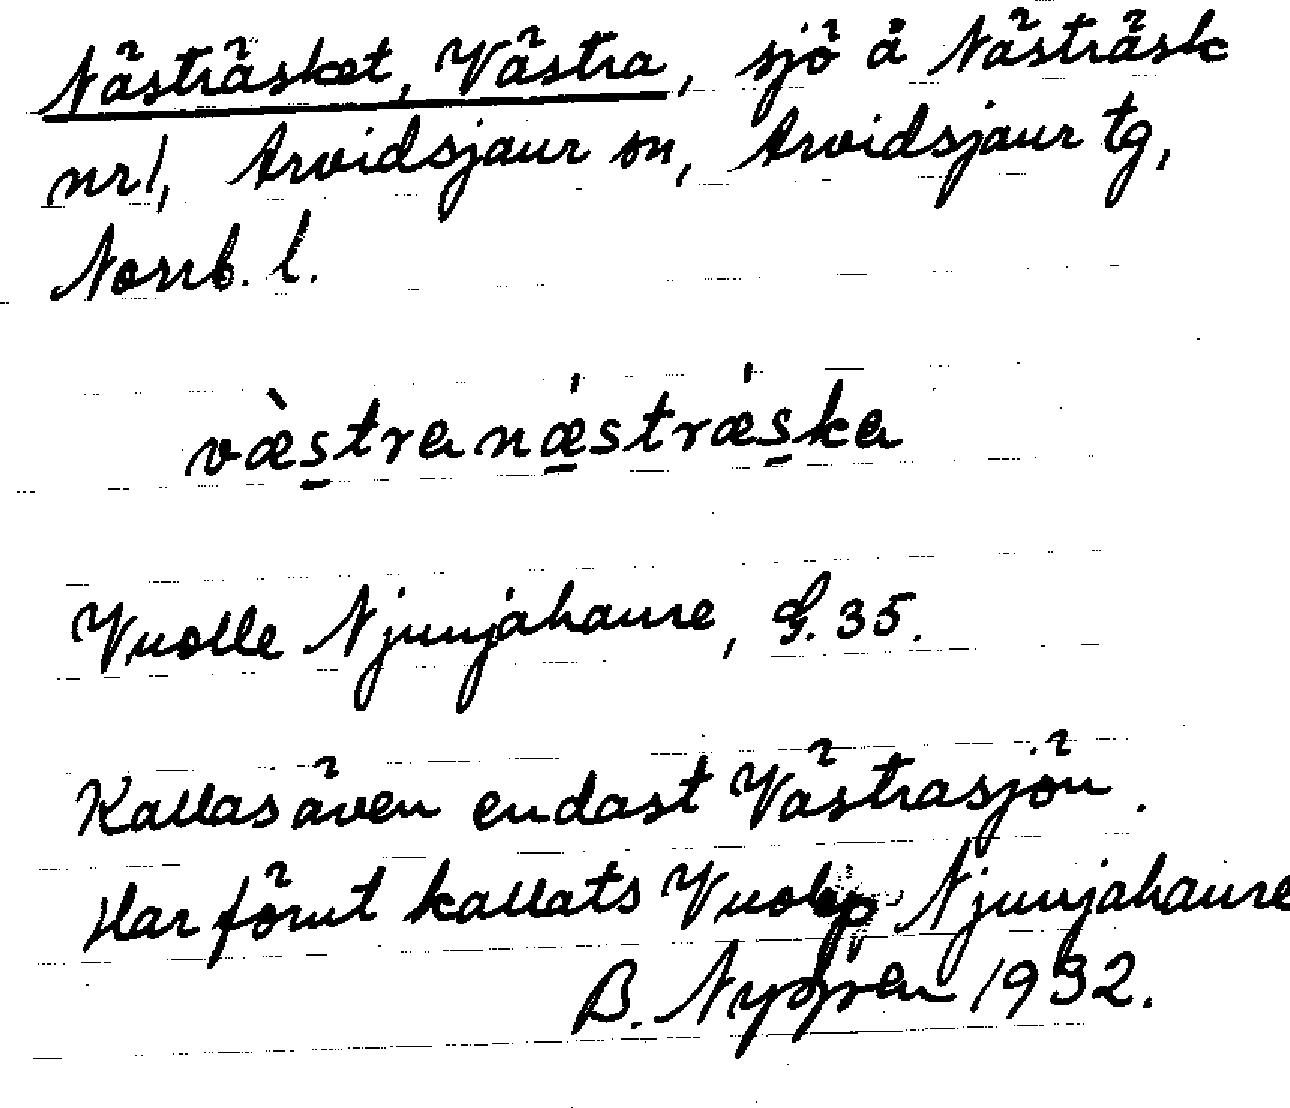 Nästräsket, Västra, sjö å Nästräsk
nr 1, Arvidsjaur sn, Arvidsjaur tg,
Norrb. l.
væ̀stra nǽstrǽska
Vuolle Njunjahaure, G. 35.
Kallas även endast Västrasjön.
Har förut kallats Vuolep Njunjahaure
B. Nygren 1932.